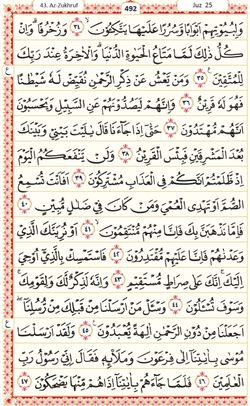 43. Az-Zukhruf 492 Juz 25
وَلِبُيُوتِهِمْ أَبْوَابًا وَسُرُرًا عَلَيْهَا يَتَّكِئُونَ ٣٤ وَزُخْرُفًا وَإِنْ
كُلُّ ذَلِكَ لَمَّا مَتَاعُ الْحَيَوةِ الدُّنْيَا وَالْآخِرَةُ عِنْدَ رَبِّكَ
لِلْمُتَّقِينَ ٣٥ وَمَنْ يَعْشُ عَنْ ذِكْرِ الرَّحْمَنِ نُقَيِّضْ لَهُ شَيْطَنًا
فَهُوَ لَهُ قَرِينٌ ٣٦ وَإِنَّهُمْ لَيَصُدُّونَهُمْ عَنِ السَّبِيلِ وَيَحْسَبُونَ
أَنَّهُمْ مُهْتَدُونَ ٣٧ حَتَّى إِذَا جَاءَنَا قَالَ يَلَيْتَ بَيْنِي وَبَيْنَكَ
بُعْدَ الْمَشْرِقَيْنِ فَبِئْسَ الْقَرِينُ ٣٨ وَلَنْ يَنْفَعَكُمُ الْيَوْمَ
إِذْ ظَلَمْتُمْ أَنَّكُمْ فِي الْعَذَابِ مُشْتَرِكُونَ ٣٩ أَفَأَنْتَ تُسْمِعُ
الصُّمَّ أَوْ تَهْدِي الْعُمْيَ وَمَنْ كَانَ فِي ضَلَلٍ مُبِينٍ ٤٠
فَإِمَّا نَذْهَبَنَّ بِكَ فَإِنَّا مِنْهُمْ مُنْتَقِمُونَ ٤١ أَوْ نُرِيَنَّكَ الَّذِي
وَعَدْنَهُمْ فَإِنَّا عَلَيْهِمْ مُقْتَدِرُونَ ٤٢ فَاسْتَمْسِكْ بِالَّذِي أُوحِيَ
إِلَيْكَ إِنَّكَ عَلَى صِرَاطٍ مُسْتَقِيمٍ ٤٣ وَإِنَّهُ لَذِكْرٌ لَكَ وَلِقَوْمِكَ
وَسَوْفَ تُسْأَلُونَ ٤٤ وَسْئَلْ مَنْ أَرْسَلْنَا مِنْ قَبْلِكَ مِنْ رُسُلِنَا
أَجَعَلْنَا مِنْ دُونِ الرَّحْمَنِ آلِهَةً يُعْبَدُونَ ٤٥ وَلَقَدْ أَرْسَلْنَا
مُوسَى بِآيَتِنَا إِلَى فِرْعَوْنَ وَمَلَائِهِ فَقَالَ إِنِّي رَسُولُ رَبِّ
الْعَلَمِينَ ٤٦ فَلَمَّا جَاءَهُمْ بِآيَتِنَا إِذَا هُمْ مِنْهَا يَضْحَكُونَ ٤٧